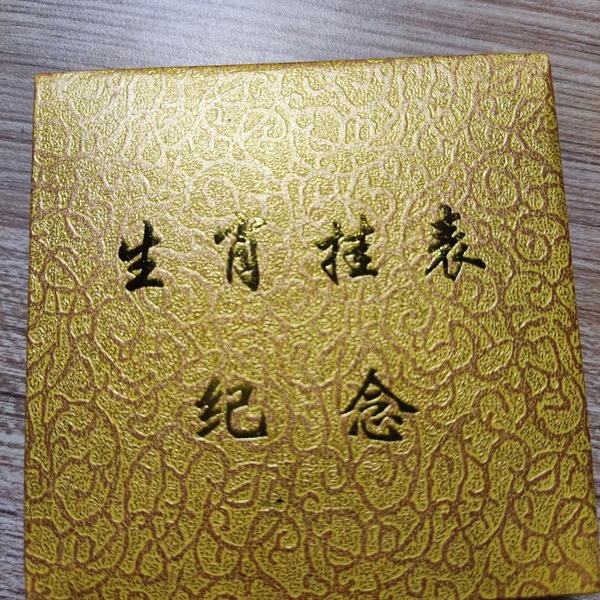 生肖挂表
纪念